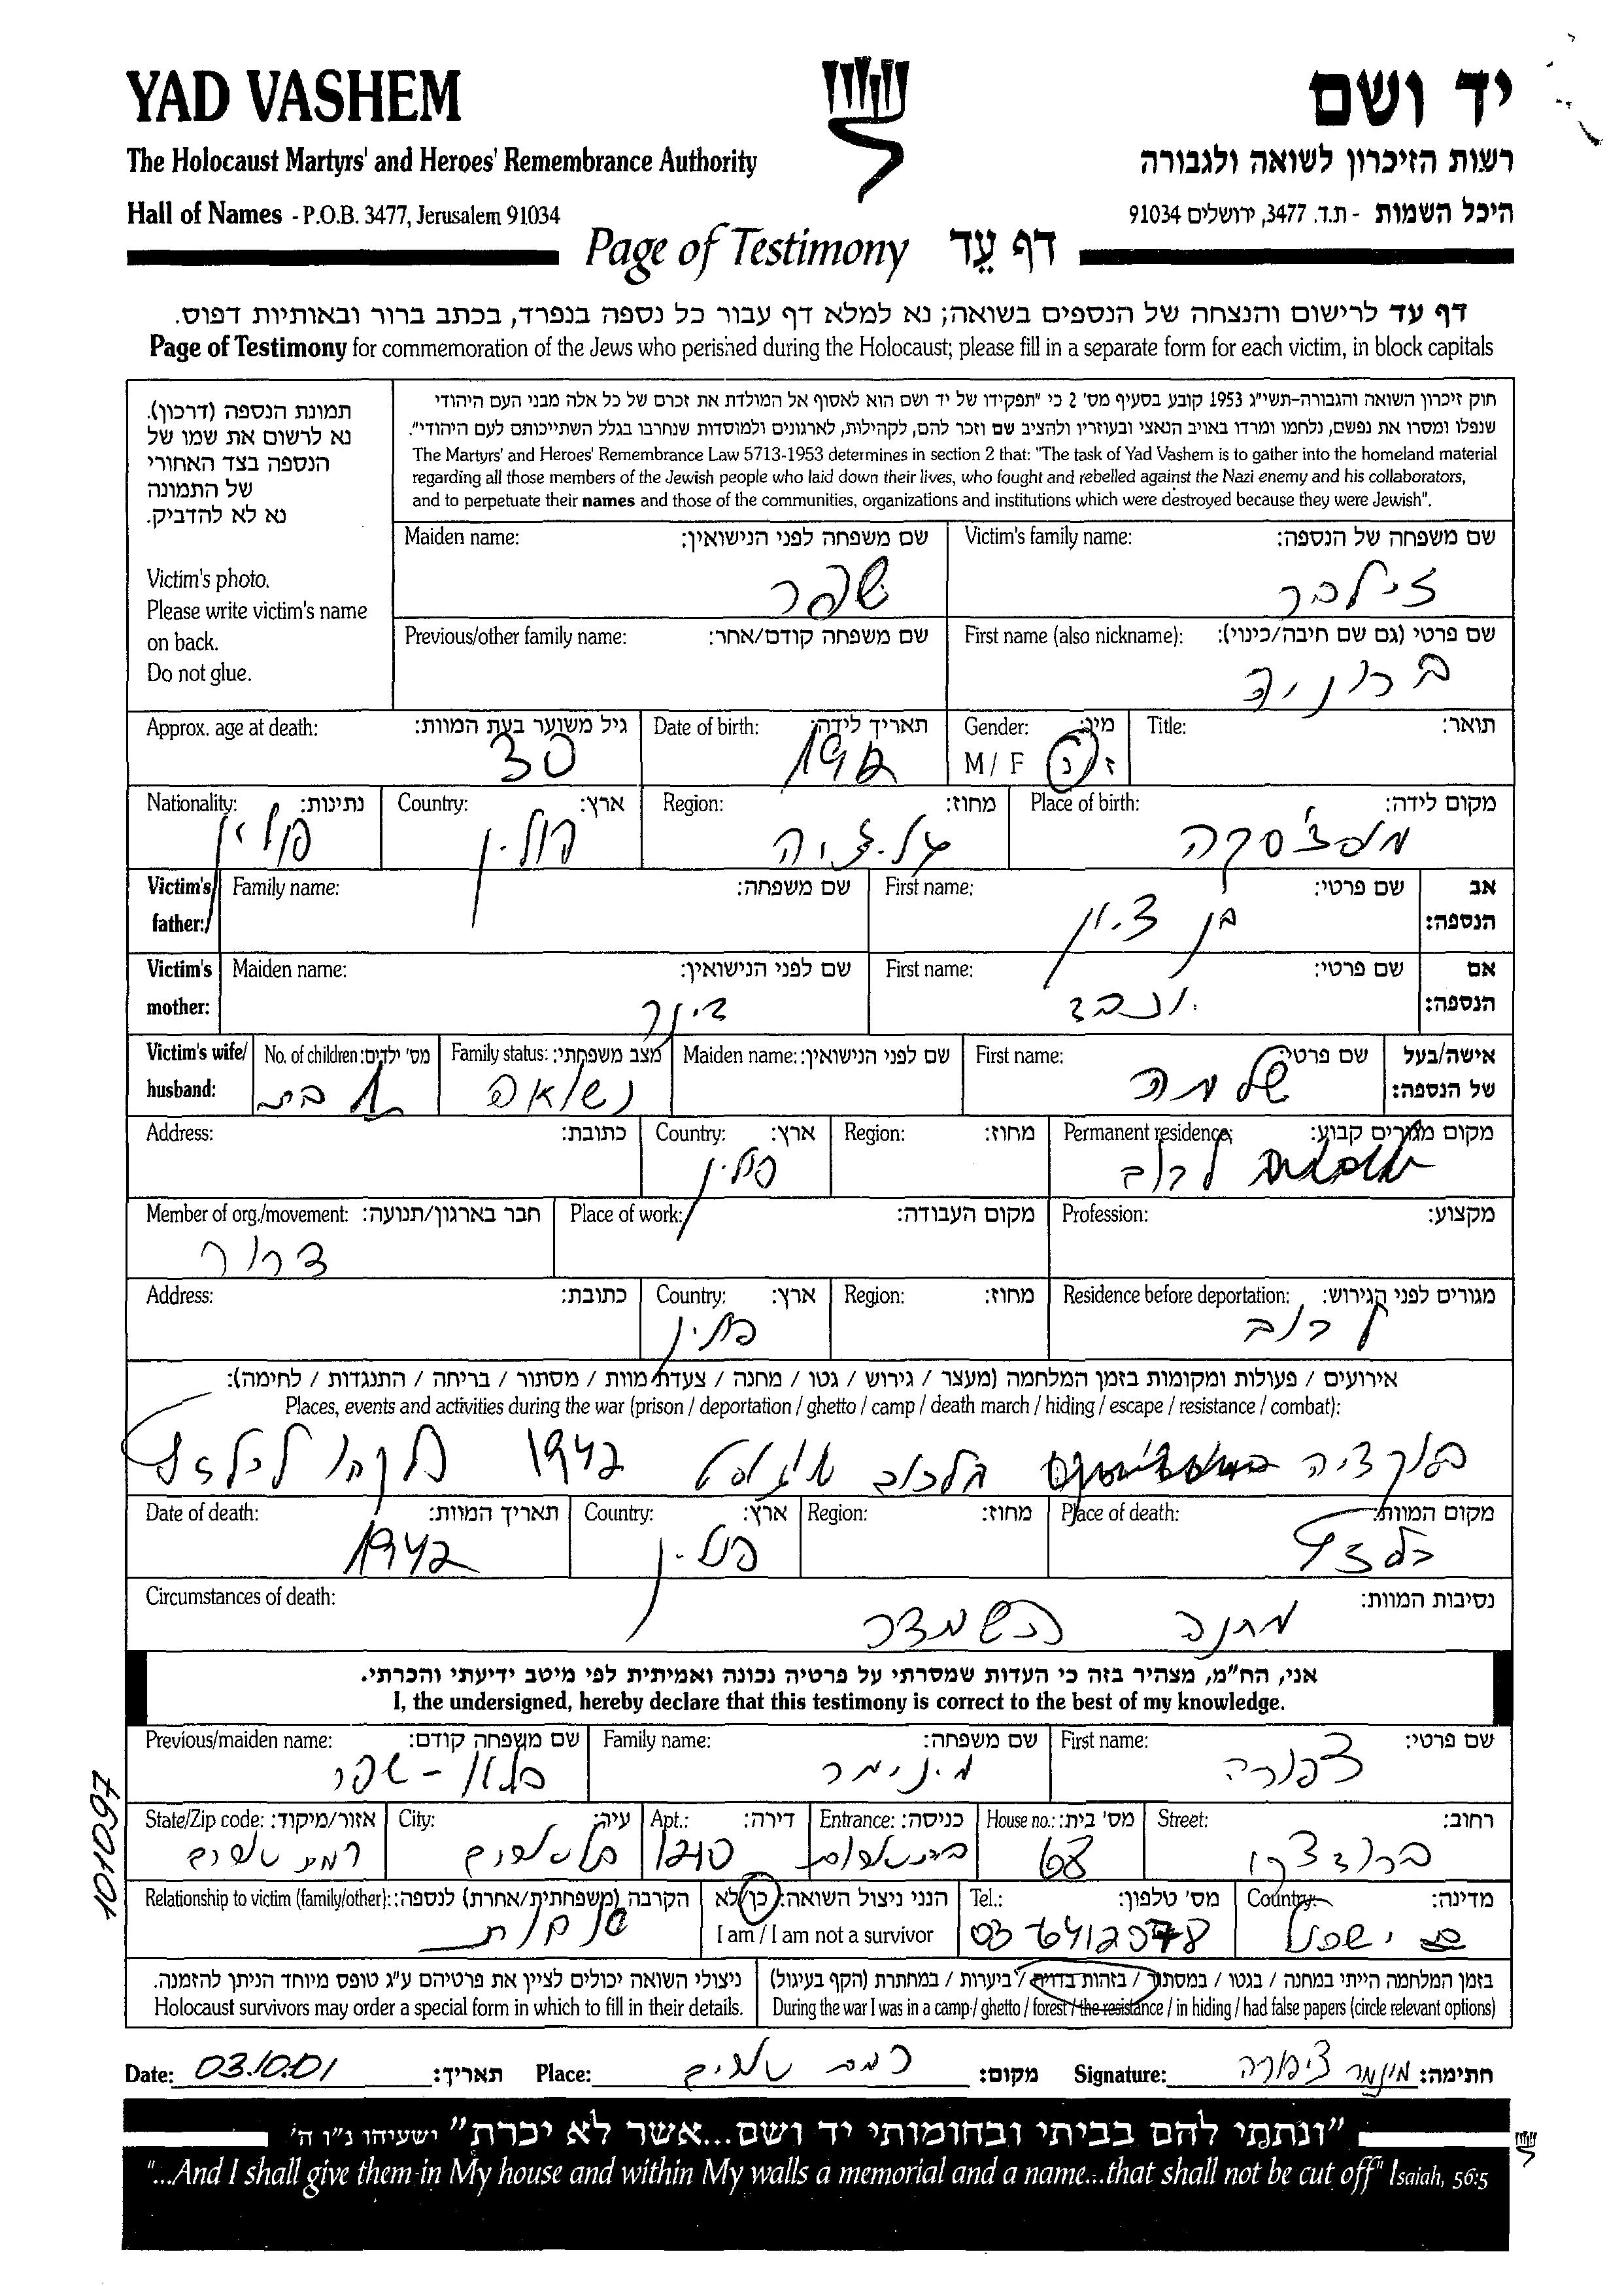 YAD VASHEM
יד ושם
The Holocaust Martyrs' and Heroes' Remembrance Authority
רשות הזיכרון לשואה ולגבורה
Hall of Names - P.O.B. 3477, Jerusalem 91034
היכל השמות - ת.ד. 3477, ירושלים 91034
Page of Testimony דף עֵד
דף עד לרישום והנצחה של הנספים בשואה; נא למלא דף עבור כל נספה בנפרד, בכתב ברור ובאותיות דפוס.
Page of Testimony for commemoration of the Jews who perished during the Holocaust; please fill in a separate form for each victim, in block capitals
תמונת הנספה (דרכון).
נא לרשום את שמו של
הנספה בצד האחורי
של התמונה
נא לא להדביק.
Victim's photo.
Please write victim's name
on back.
Do not glue.
חוק זיכרון השואה והגבורה-תשי"ג 1953 קובע בסעיף מס' 2 כי "תפקידו של יד ושם הוא לאסוף אל המולדת את זכרם של כל אלה מבני העם היהודי
שנפלו ומסרו את נפשם, נלחמו ומרדו באויב הנאצי ובעוזריו ולהציב שם וזכר להם, לקהילות, לארגונים ולמוסדות שנחרבו בגלל השתייכותם לעם היהודי".
The Martyrs' and Heroes' Remembrance Law 5713-1953 determines in section 2 that: "The task of Yad Vashem is to gather into the homeland material
regarding all those members of the Jewish people who laid down their lives, who fought and rebelled against the Nazi enemy and his collaborators,
and to perpetuate their names and those of the communities, organizations and institutions which were destroyed because they were Jewish".
Victim's family name: שם משפחה של הנספה:
זילבר
Maiden name: שם משפחה לפני הנישואין:
שפר
First name (also nickname): שם פרטי (גם שם חיבה/כינוי):
ברוניה
Previous/other family name: שם משפחה קודם/אחר:
Title: תואר:
Gender: מין:
M / F ז / נ
Date of birth: תאריך לידה:
1912
Approx. age at death: גיל משוער בעת המוות:
30
Place of birth: מקום לידה:
Region: מחוז:
גליציה
Country: ארץ:
פולין
Nationality: נתינות:
פולין
Victim's father: אב הנספה:
First name: שם פרטי:
בן ציון
Family name: שם משפחה:
Victim's mother: אם הנספה:
First name: שם פרטי:
Maiden name: שם לפני הנישואין:
Victim's wife/ husband: אישה/בעל של הנספה:
First name: שם פרטי:
שלמה
Maiden name: שם לפני הנישואין:
Family status: מצב משפחתי:
נשואה
No. of children: מס' ילדים:
1 בת
Permanent residence: מקום מגורים קבוע:
לבוב
Region: מחוז:
Country: ארץ:
פולין
Address: כתובת:
Profession: מקצוע:
Place of work: מקום העבודה:
Member of org./movement: חבר בארגון/תנועה:
דרור
Residence before deportation: מגורים לפני הגירוש:
לבוב
Region: מחוז:
Country: ארץ:
פולין
Address: כתובת:
אירועים / פעולות ומקומות בזמן המלחמה (מעצר / גירוש / גטו / מחנה / צעדת מוות / מסתור / בריחה / התנגדות / לחימה):
Places, events and activities during the war (prison / deportation / ghetto / camp / death march / hiding / escape / resistance / combat):
בלבוב אוגוסט 1942 נלקחו לבלזץ
Place of death: מקום המוות:
בלזץ
Region: מחוז:
Country: ארץ:
פולין
Date of death: תאריך המוות:
1942
Circumstances of death: נסיבות המוות:
מחנה השמדה
אני, הח"מ, מצהיר בזה כי העדות שמסרתי על פרטיה נכונה ואמיתית לפי מיטב ידיעתי והכרתי.
I, the undersigned, hereby declare that this testimony is correct to the best of my knowledge.
First name: שם פרטי:
צפורה
Family name: שם משפחה:
מינימר
Previous/maiden name: שם משפחה קודם:
בלוי - שפר
Street: רחוב:
ברודצקי
House no.: מס' בית:
68
Entrance: כניסה:
Apt.: דירה:
1210
City: עיר:
State/Zip code: אזור/מיקוד:
רמת אביב
Country: מדינה:
ישראל
Tel.: מס' טלפון:
I am / I am not a survivor הנני ניצול השואה: כן/לא
Relationship to victim (family/other): הקרבה (משפחתית/אחרת) לנספה:
אחות
בזמן המלחמה הייתי במחנה / בגטו / במסתור / בזהות בדויה / ביערות / במחתרת (הקף בעיגול)
During the war I was in a camp / ghetto / forest / the resistance / in hiding / had false papers (circle relevant options)
ניצולי השואה יכולים לציין את פרטיהם ע"ג טופס מיוחד הניתן להזמנה.
Holocaust survivors may order a special form in which to fill in their details.
101097
Date: 03.10.01 תאריך: Place: רמת אביב מקום: Signature: מינמר ציפורה חתימה:
"ונתתי להם בביתי ובחומותי יד ושם...אשר לא יכרת" ישעיהו נ"ו ה'
"...And I shall give them in My house and within My walls a memorial and a name...that shall not be cut off" Isaiah, 56:5